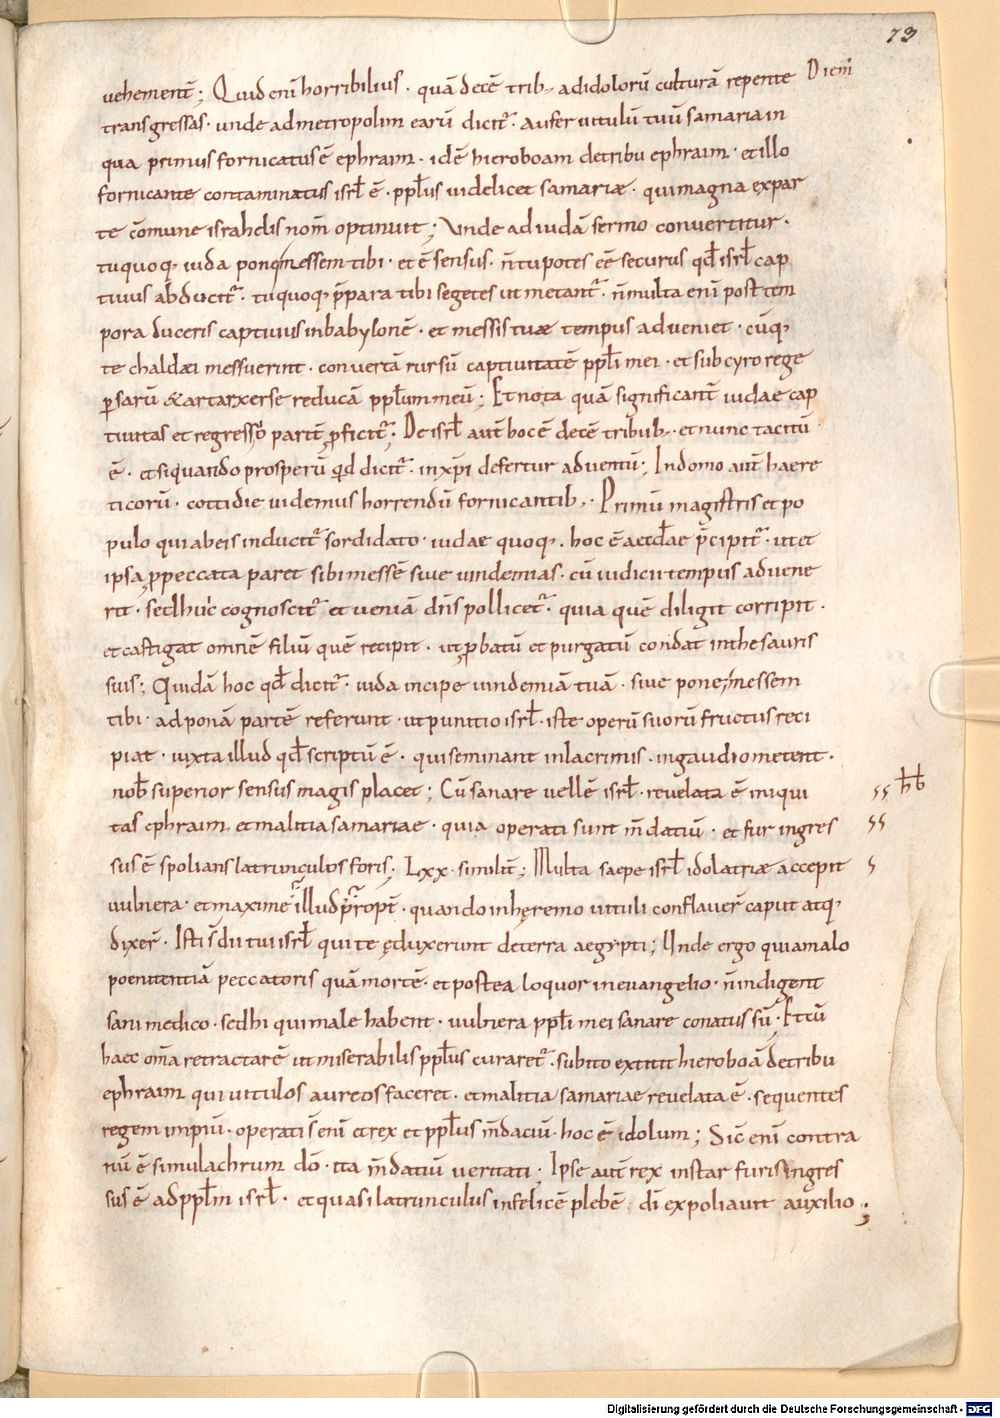 73
uehement̄; Quid eni horribilius· quā decē trib; ad idolorū culturā repente Diem̄
transgressas· unde ad metropolim earū dicit̄· Aufer uitulū tuū samaria in
qua primus fornicatus ē ephraim· idē hieroboam de tribu ephraim· et illo
fornicante contaminatus isrl̄ ē· ppl̄us uidelicet samariae· qui magna ex par
te cōmune israhelis nom̄ optinuit; Vnde ad iudā sermo conuertitur·
tu quoq; iuda pone messem tibi· et ē sensus· n̄ tu potes eē securus qd̄ isrl̄ cap
tiuus abducit̄· tu quoq; p̄para tibi segetes ut metant̄· n̄ multa eni post tem
pora duceris captiuus in babylonē· et messis tuae tempus adueniet· cūq;
te chaldaei messuerint· conuertā rursū captiuitatē ppl̄i mei· et sub cyro rege
p̱sarū & artarxerse reducā ppl̄um meū; Et nota quā significant̄ iudae cap
tiuitas et regressio partē p̱ficit̄; De isrl̄ aut̄ hoc ē decē tribub;· et nunc tacitū
ē· et si quando prosperū qd̄ dicit̄· in xp̄i defertur aduentū; In domo aut̄ haere
ticorū· cottidie uidemus horrendū fornicantib;· Primū magistris et po
pulo qui ab eis inducit̄ sordidato· iudae quoq;· hoc ē aecclae p̄cipit̄· ut et
ipsa p̱ peccata paret sibi messē siue uindemias· cū iudicii tempus aduene
rit· sed huic cognoscit̄ et ueniā dn̄s pollicet̄· quia quē diligit corripit·
et castigat omnē filiū quē recipit· ut p̱batū et purgatū condat in thesauris
suis; Quidā hoc qd̄ dicit̄· iuda incipe uindemiā tuā· siue pone messem
tibi· ad ponā partē referunt· ut punitio isrl̄· iste operū suorū fructus reci
piat· iuxta illud qd̄ scriptū ē· qui seminant in lacrimis· in gaudio metent·
nob̄ superior sensus magis placet; Cū sanare uellē isrl̄· reuelata ē iniqui
tas ephraim et malitia samariae· quia operati sunt m̄datiū· et fur ingres
sus ē spolians latrunculus foris; Lxx· similit̄; Multa saepe isrl̄ idolatriae accepit
uulnera· et maxime illud p̱ropt̄· quando in heremo uituli conflauer̄ caput atq;
dixer̄· Isti s̄ dii tui isrl̄ qui te eduxerunt de terra aegypti; Unde ergo quia malo
poenitentiā peccatoris quā mortē· et postea loquor in euangelio· n̄ indigent
sani medico· sed hi qui male habent· uulnera ppl̄i mei sanare conatus sū· Et cū
haec om̄a retractarē ut miserabilis ppl̄us curaret̄· subito extitit hieroboā de tribu
ephraim qui uitulos aureos faceret· et malitia samariae reuelata ē· sequentes
regem impiū· operati s̄ eni et rex et ppl̄us m̄daciū· hoc ē idolum; Sic eni contra
riū ē simulachrum dō· ita m̄datiū ueritati· Ipse aut̄ rex instar furis ingres
sus ē ad ppl̄m isrl̄· et quasi latrunculus infelicē plebē dī expoliauit auxilio;
Digitalisierung gefördert durch die Deutsche Forschungsgemeinschaft - DFG